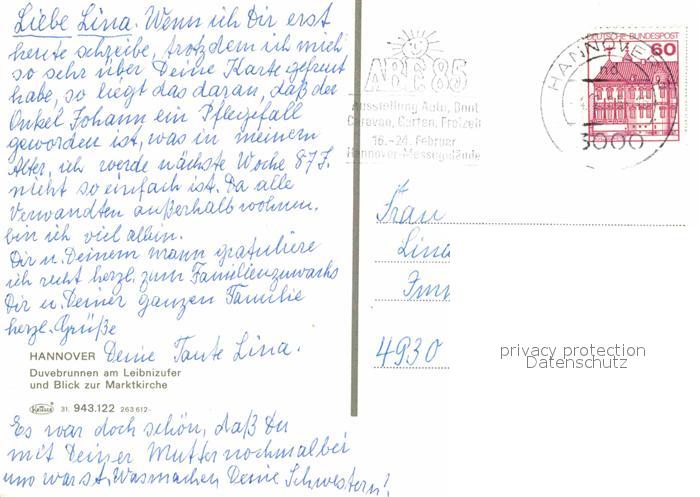 Liebe Lina. Wenn ich Dir erst
heute schreibe, trotzdem ich mich
so sehr über Deine Karte gefreut
habe, so liegt das daran, daß der
Onkel Johann ein Pflegefall
geworden ist, was in meinem
Alter, ich werde nächste Woche 87 J.
nicht so einfach ist. Da alle
Verwandten außerhalb wohnen,
bin ich viel allein.
Dir u. Deinem Mann gratuliere
ich recht herzl. zum Familienzuwachs
Dir u. Deiner ganzen Familie
herzl. Grüße
Deine Tante Lina.
HANNOVER
Duvebrunnen am Leibnizufer
und Blick zur Marktkirche
Krüger 31. 943.122 263 612-
Es war doch schön, daß Du
mit Deiner Mutter nochmal bei
uns warst. Was machen Deine Schwestern?
ABF 85
Ausstellung Auto, Boot
Caravan, Garten, Freizeit
16.-24. Februar
Hannover-Messegelände
DEUTSCHE BUNDESPOST
60
HANNOVER
3000
Frau
Lina
4930
privacy protection
Datenschutz